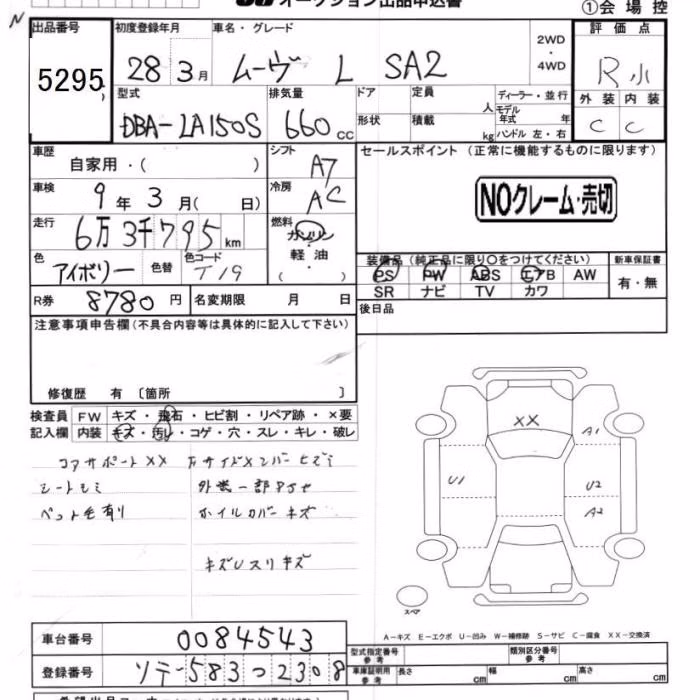 オークション出品申込書
①会場控
N
出品番号 初度登録年月 車名・グレード 2WD・4WD 評価点
5295 28 3月 ムーヴ L SA2 R小
型式 排気量 ドア 定員 人 ディーラー・並行 外装 内装
DBA-LA150S 660 cc 形状 積載 kg モデル年式 年 C C
ハンドル 左・右
車歴 シフト セールスポイント (正常に機能するものに限ります)
自家用・( ) A7
車検 冷房 NOクレーム・売切
9年 3月( 日) AC
走行 燃料
6万3千795km ガソリン
色 色替 色コード 軽油 装備品 (純正品に限り〇をつけてください) 新車保証書
アイボリー T19 ( ) PS PW ABS エアB AW 有・無
R券 8780円 名変期限 月 日 SR ナビ TV カワ
後日品
注意事項申告欄(不具合内容等は具体的に記入して下さい)
修復歴 有 〔箇所 〕
検査員 FW キズ・飛石・ヒビ割・リペア跡・×要
記入欄 内装 キズ・汚レ・コゲ・穴・スレ・キレ・破レ
コアサポートXX 左サイドメンバーヒズミ
シートヨミ 外装一部
ペット毛有り ホイルカバーキズ
キズUスリキズ
XX
A1
U1 U2
A2
スペア
A-キズ E-エクボ U-凹み W-補修跡 S-サビ C-腐食 XX-交換済
車台番号 0084543
登録番号 ソテ-583つ2308
型式指定番号 参考 類別区分番号 参考
車庫証明用 参考 長さ cm 幅 cm 高さ cm